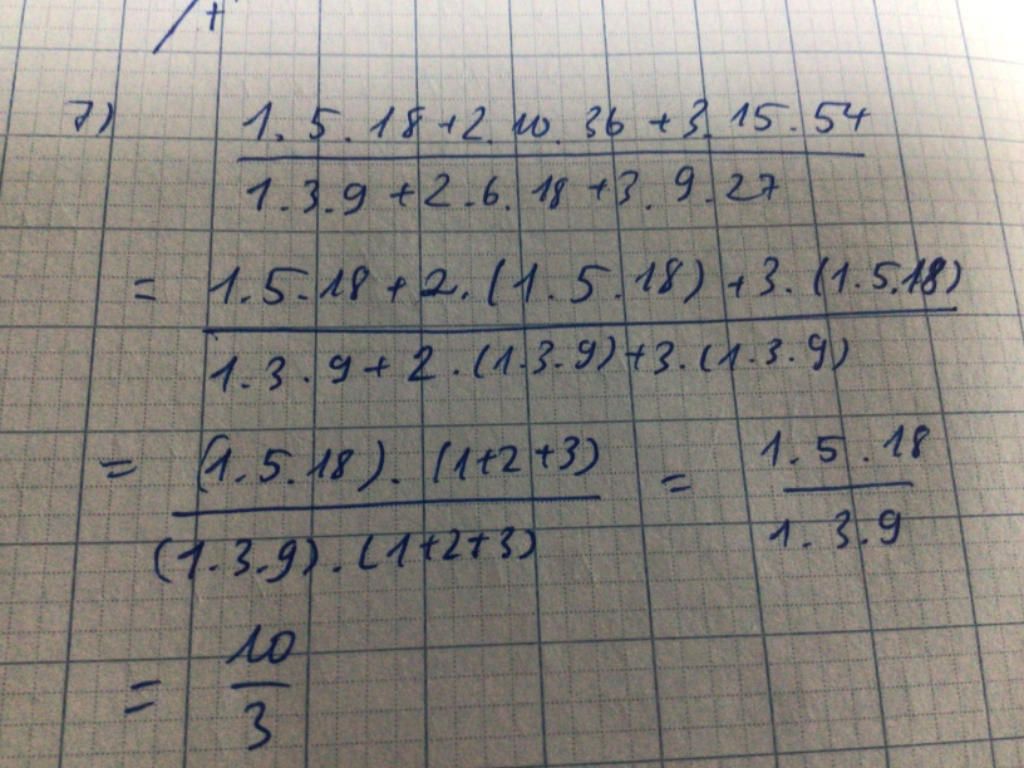 7) 1.5.18+2.10.36+3.15.54
1.3.9+2.6.18+3.9.27
= 1.5.18+2.(1.5.18)+3.(1.5.18)
1.3.9+2.(1.3.9)+3.(1.3.9)
= (1.5.18).(1+2+3) = 1.5.18
(1.3.9).(1+2+3) 1.3.9
= 10
3